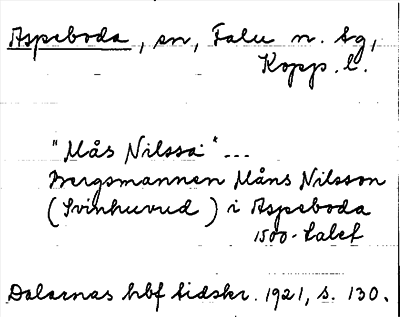 Aspeboda, sn, Falu n. tg,
Kopp. l.
"Mås Nilssa" ...
Bergsmannen Måns Nilsson
(Svinhuvud) i Aspeboda
1500-talet
Dalarnas hbf tidskr. 1921, s. 130.